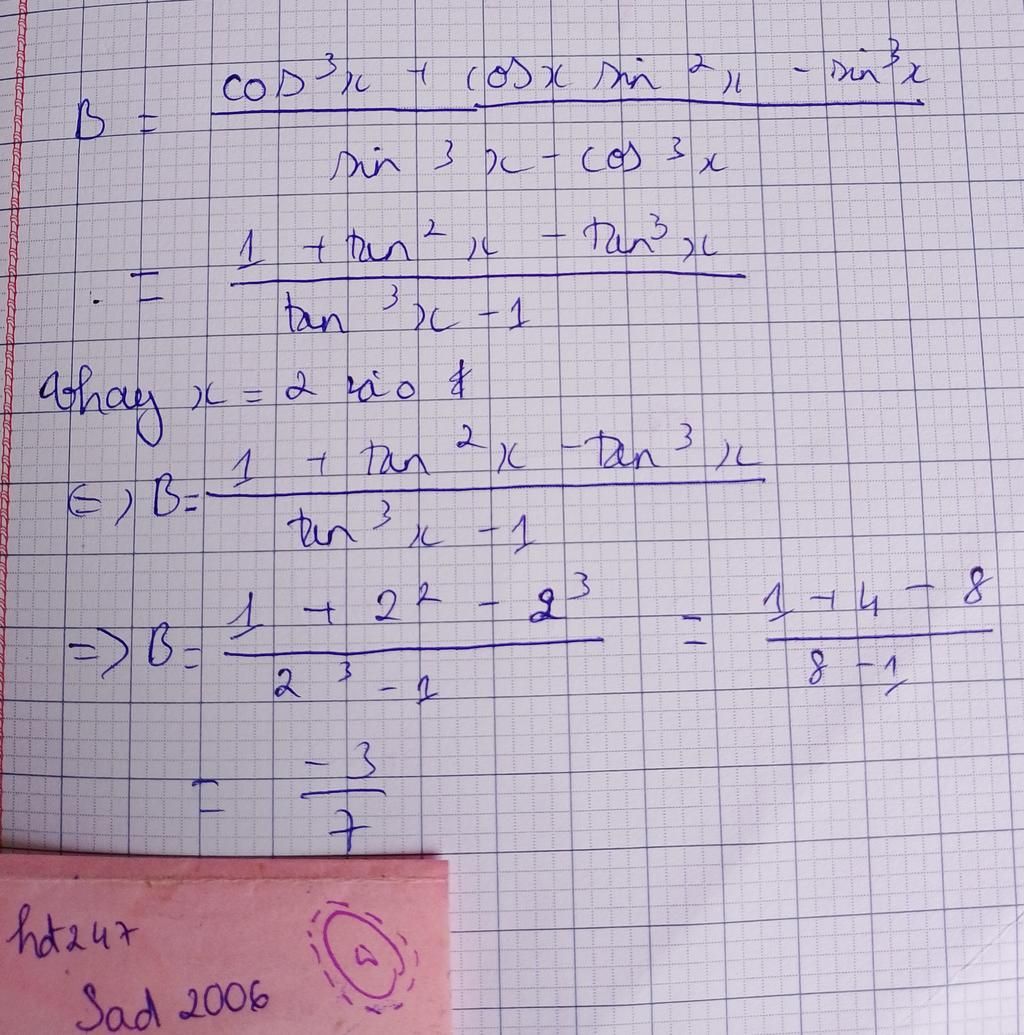 B = (cos³x + cosx sin²x - sin³x) / (sin³x - cos³x)
= (1 + tan²x - tan³x) / (tan³x - 1)
Thay x = 2 vào
<=> B = (1 + tan²x - tan³x) / (tan³x - 1)
=> B = (1 + 2² - 2³) / (2³ - 1) = (1 + 4 - 8) / (8 - 1)
= -3 / 7
hdt247
Sad 2006